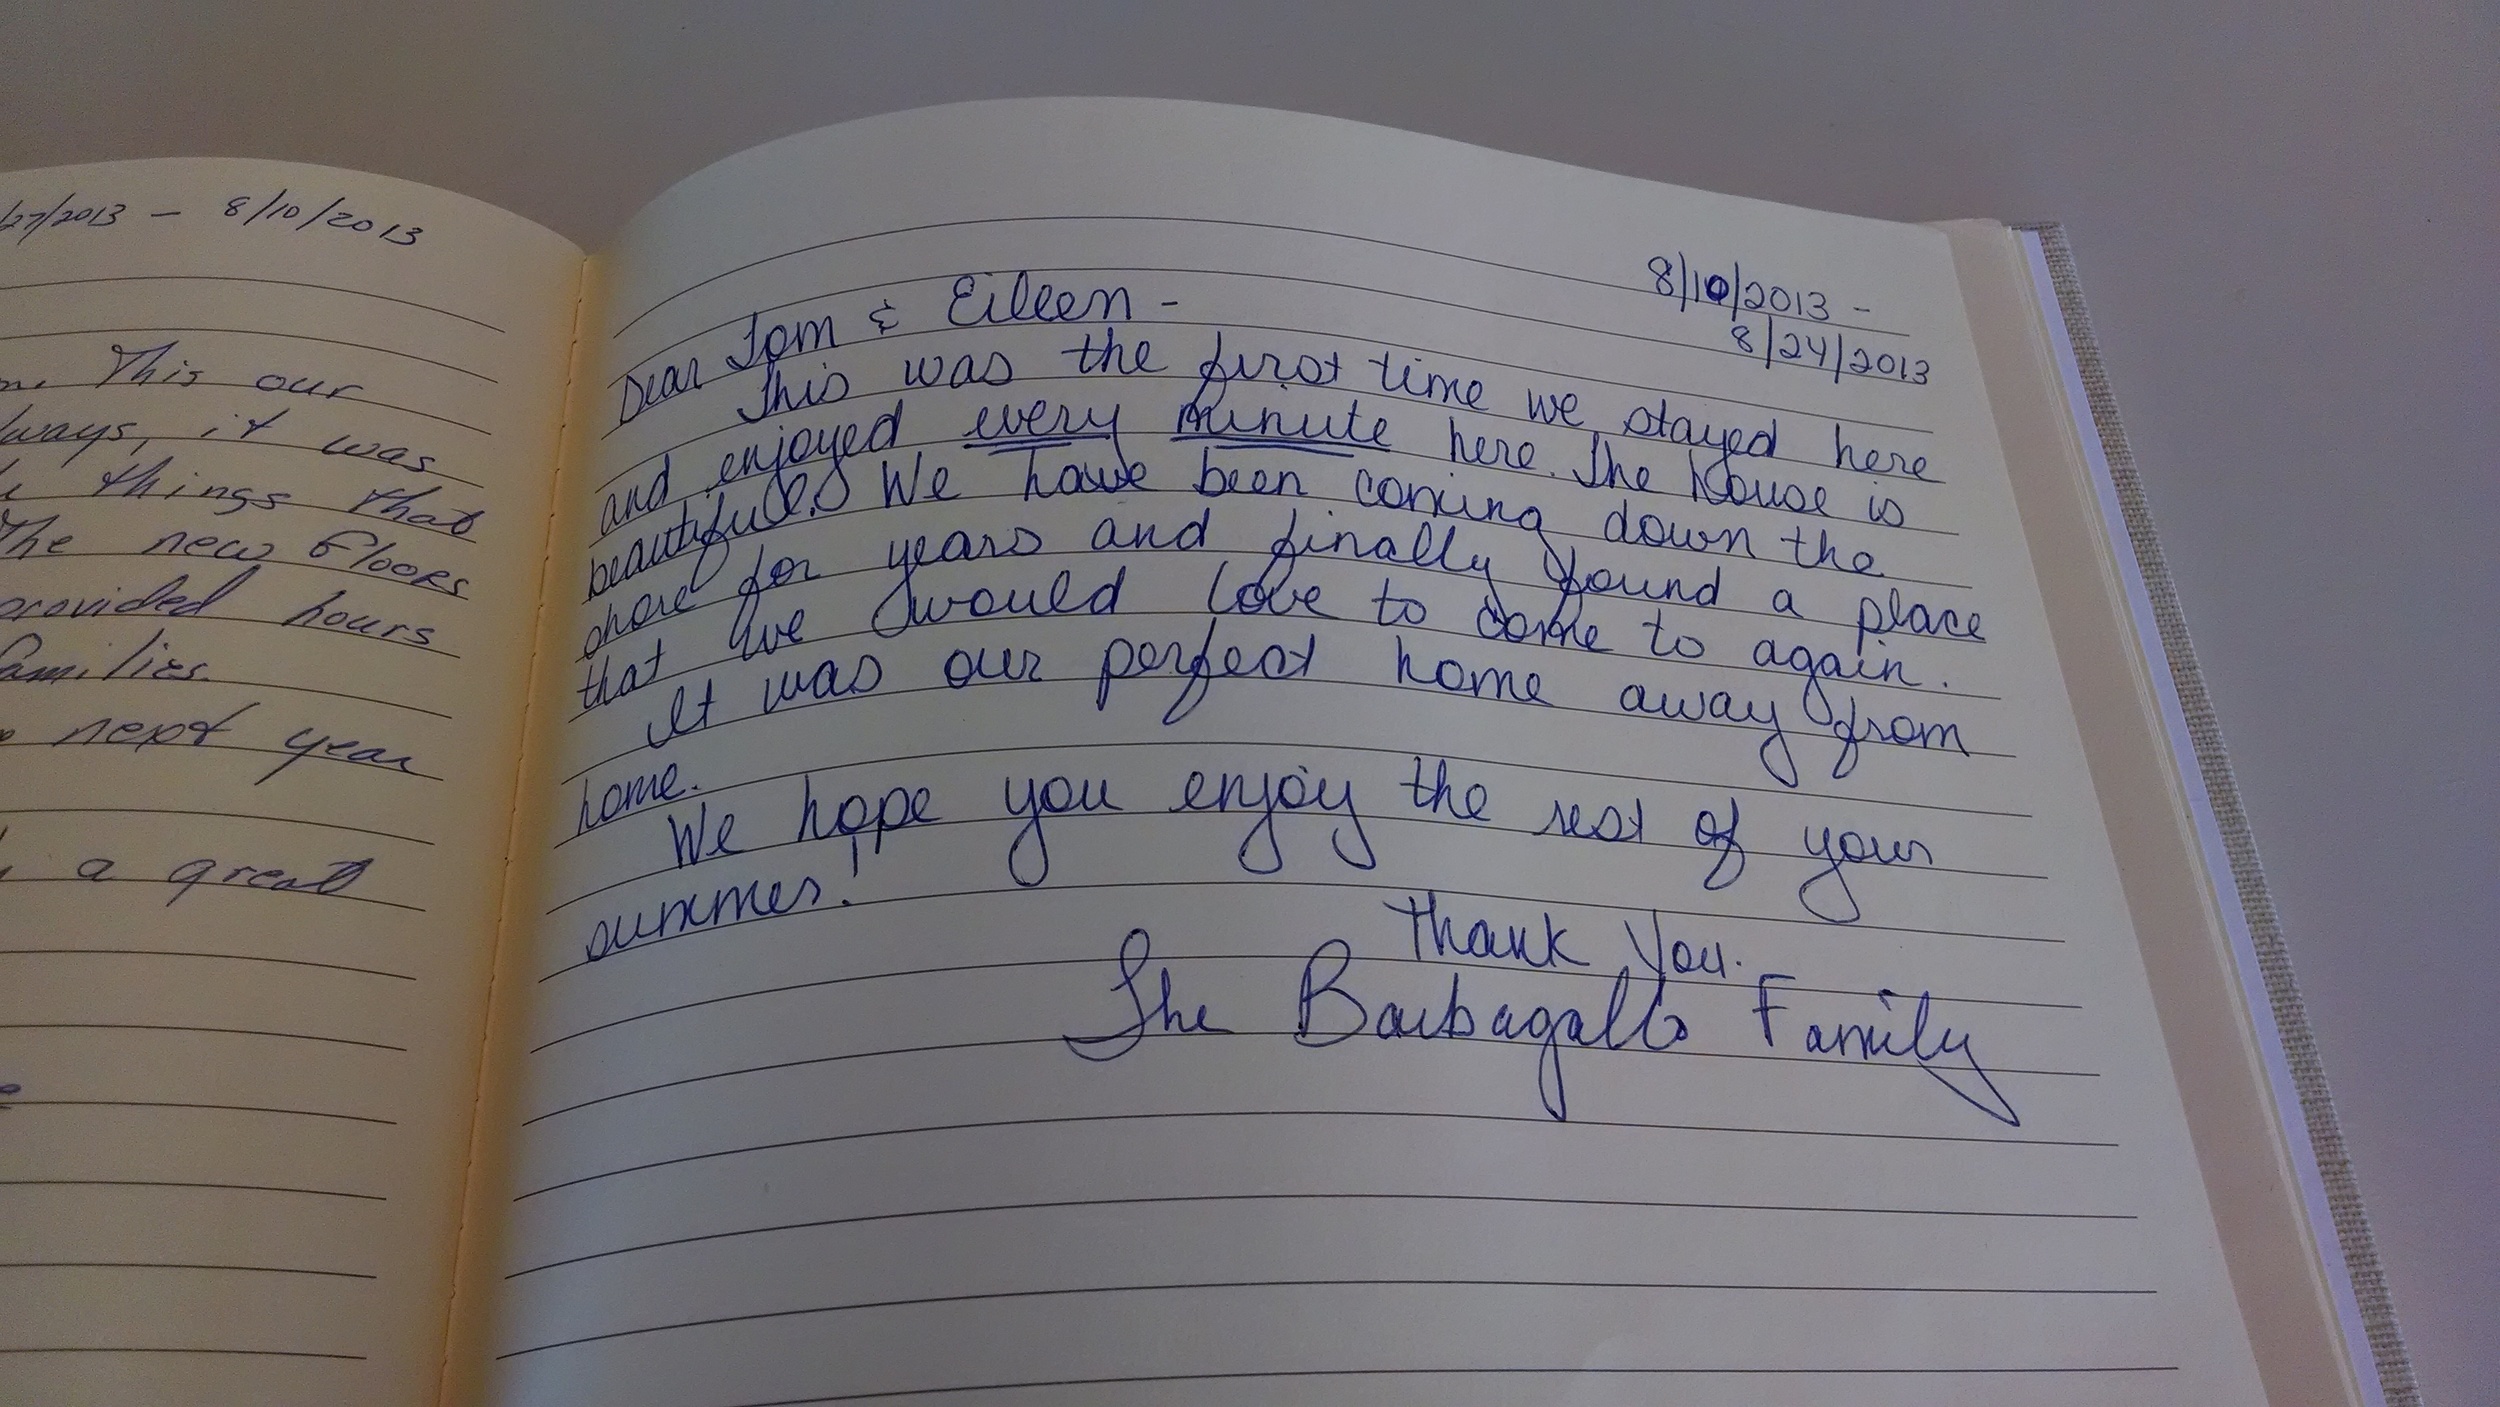 /27/2013 – 8/10/2013
This our
lways, it was
things that
The new Floors
provided hours
families.
next year
a great
8/10/2013 -
8/24/2013
Dear Tom & Eileen -
This was the first time we stayed here
and enjoyed every minute here. The house is
beautiful. We have been coming down the
shore for years and finally found a place
that we would love to come to again.
It was our perfect home away from
home.
We hope you enjoy the rest of your
summer!
Thank You.
The Barbagallo Family